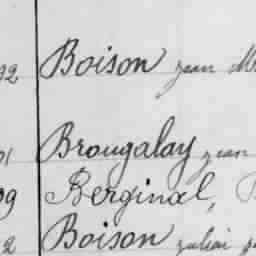 92 Boison jean M
01 Brougalay jean
09 Berginal,
2 Boison julien